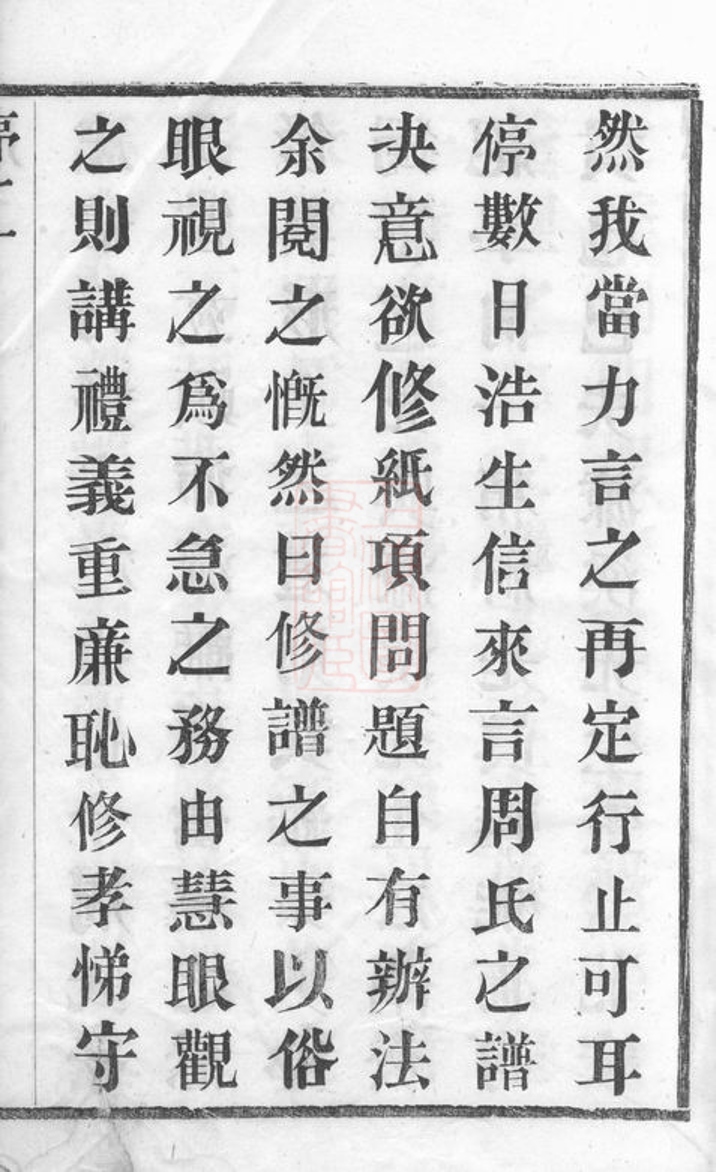 然我當力言之再定行止可耳
停數日浩生信來言周氏之譜
决意欲修紙項問題自有辦法
余閱之慨然曰修譜之事以俗
眼視之爲不急之務由慧眼觀
之則講禮義重亷恥修孝悌守